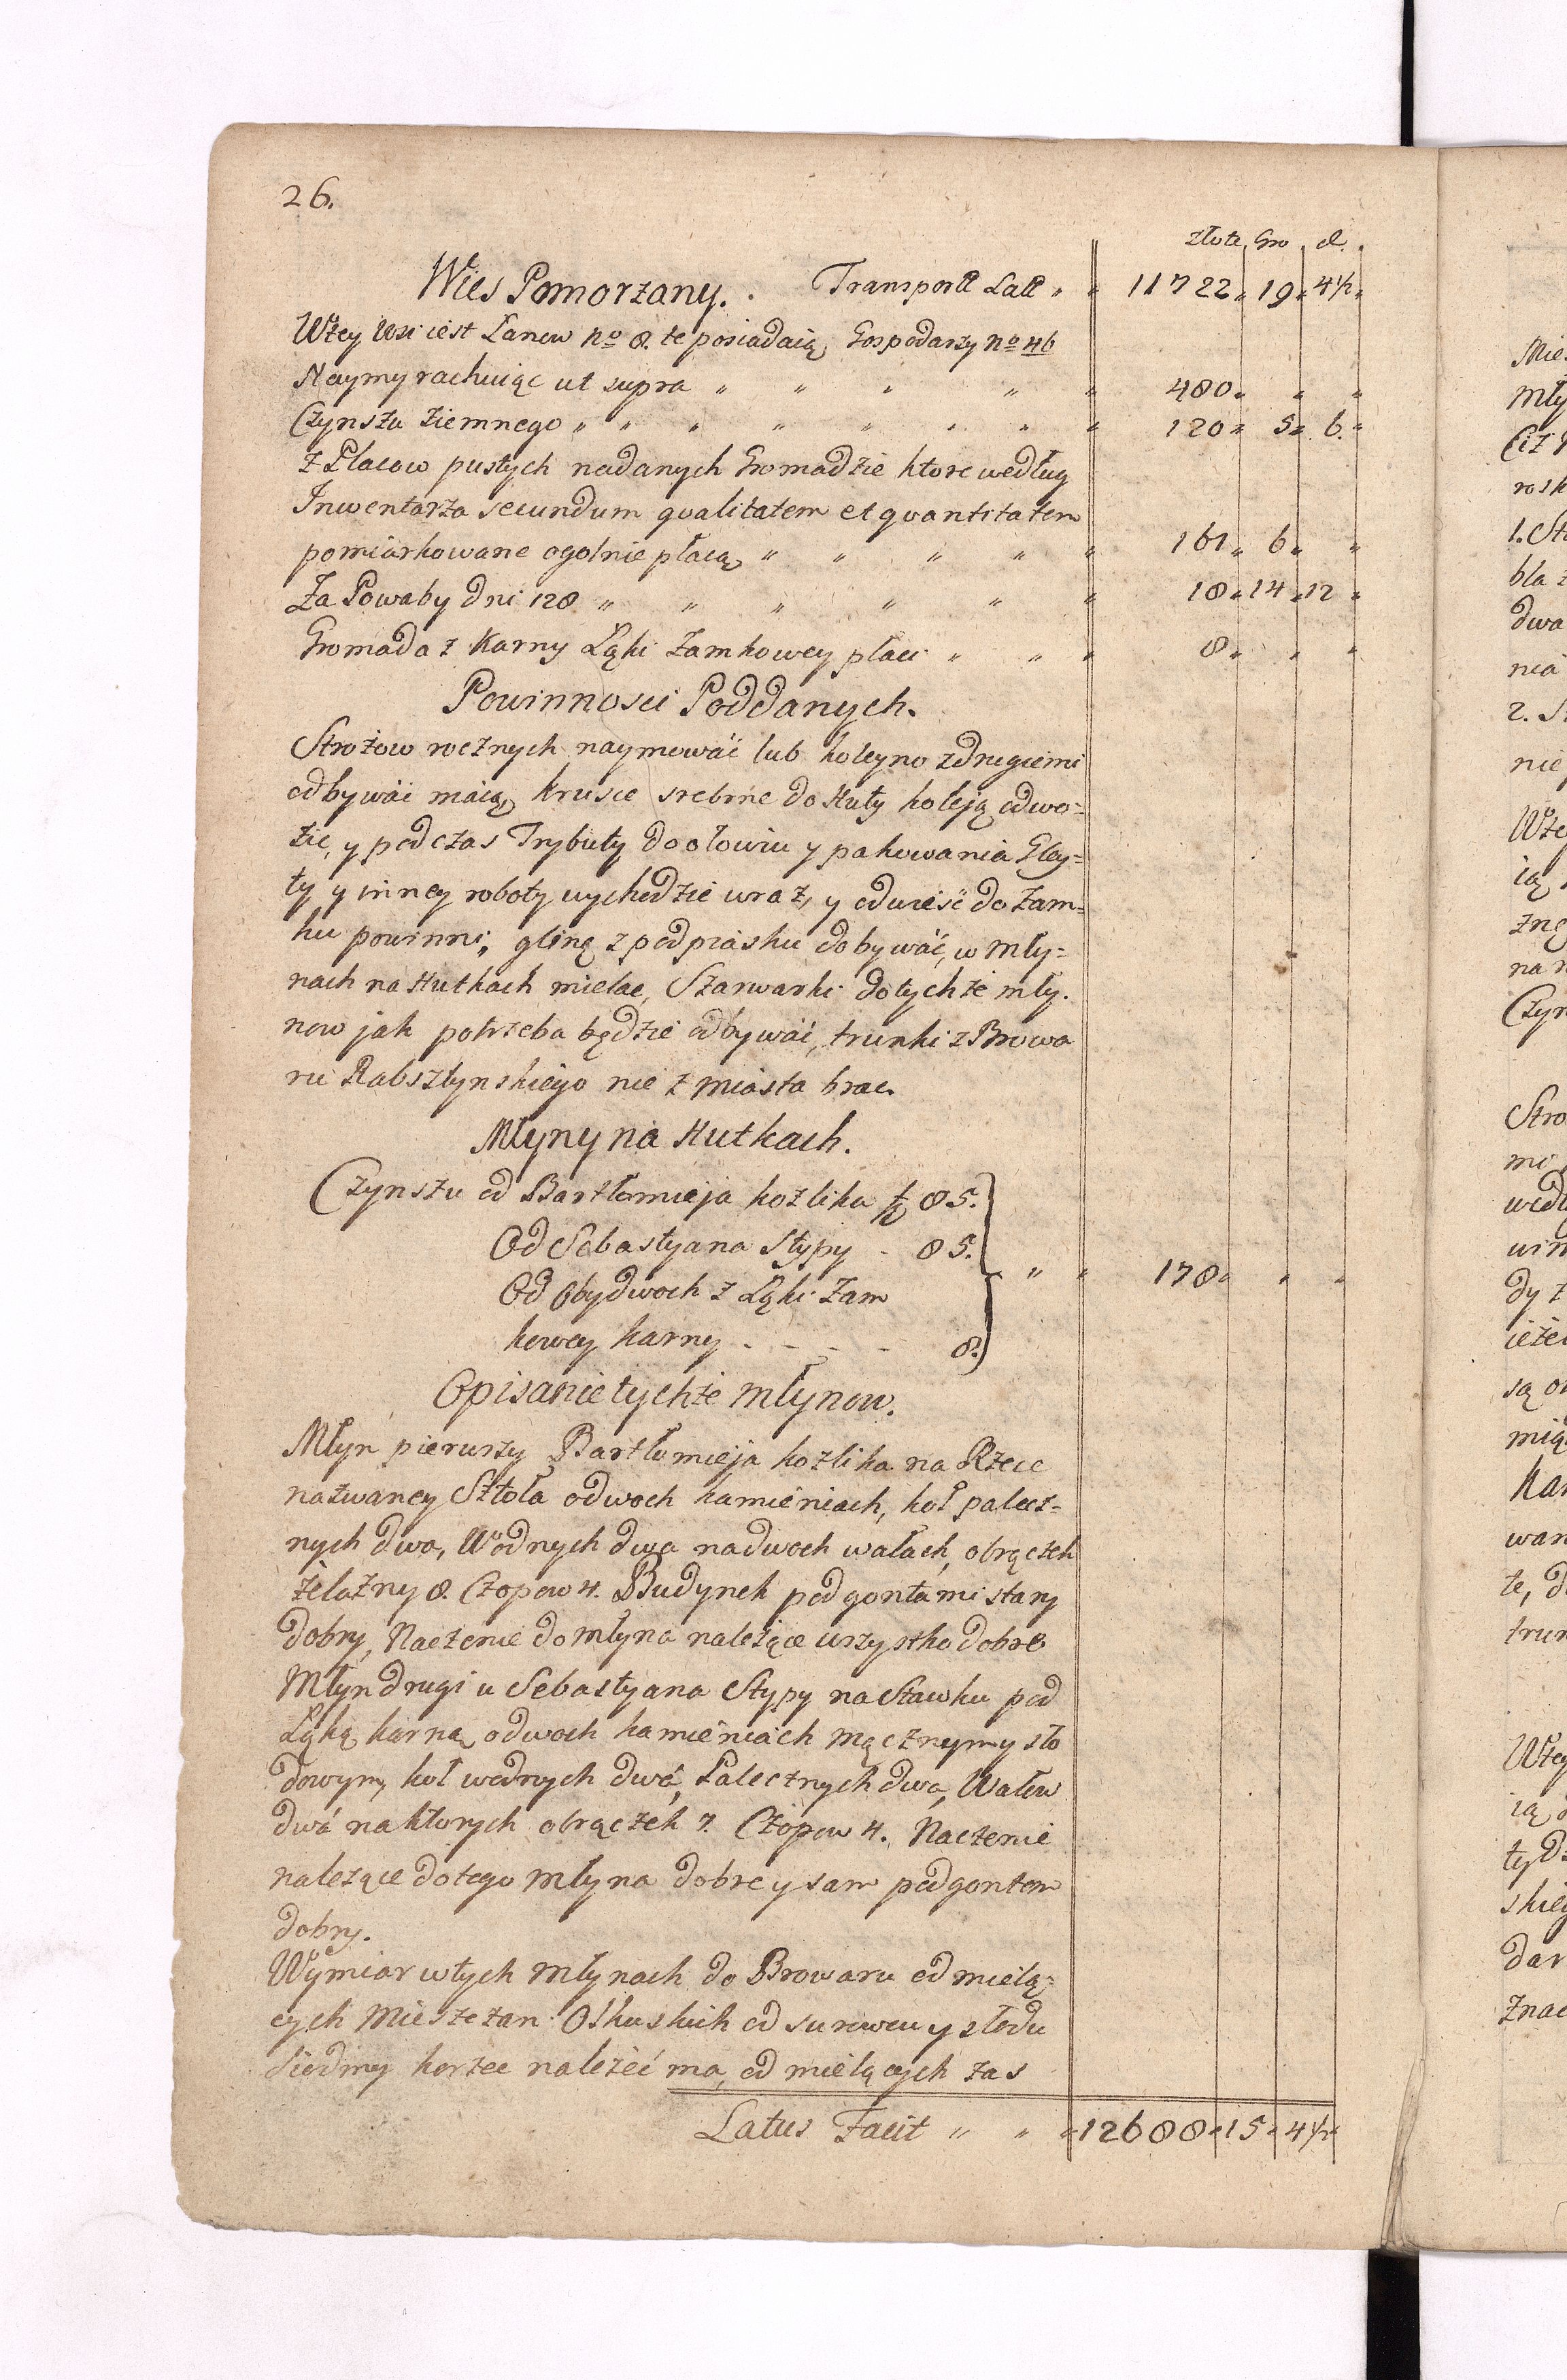 26.
złote Gro d.
Wies Pomorzany. . Transportt Latt " " 11722 " 19 " 4 1/2 "
Wtey Wsi iest Łanow No 8. te posiadaią Gospodarzy No 46
Naymy rachuiąc ut supra " " " " " 480 " " "
Czynszu ziemnego " " " " " " " " 120 " 5 " 6. "
z Placow pustych nadanych Gromadzie ktore według
Inwentarza secundum qvalitatem et qvantitatem
pomiarkowane ogolnie płacą " " " " " 161 " 6 " "
Za Powaby dni 128 " " " " " " 18 " 14 " 12 "
Gromada z Karny Łąki Zamkowey płaci " " " 8 " " "
Powinnosci Poddanych.
Strożow rocznych naymować lub koleyno zdrugiemi
odbywać maią, krusce srebrne do Huty koleją odwo=
zic, y podczas Trybuty do ołowiu y pakowania Gley=
ty y inney roboty wychodzic wraz, y odwieść do Zam=
ku powinni, glinę z pod piasku dobywać, w Mły=
nach na Hutkach mielac, Szarwarki do tychże mły.
now jak potrzeba będzie odbywać, trunki z Browa
ru Rabsztynskiego nie z miasta brac.
Młyny na Hutkach.
Czynszu od Bartłomieja Kozlika f 85.
Od Sebastyana Stypy - 85.
Od Obydwoch z Łąki Zam " " 178 " " "
kowey karny - - - - 8.
Opisanie tychże Młynow.
Młyn pierwszy Bartłomieja Kozlika na Rzece
nazwaney Sztoła o dwoch kamieniach, koł palecz-
nych dwa, Wodnych dwa na dwoch wałach, obrączek
żelazny 8. Czopow 4. Budynek pod gontami stary
dobry, Naczenie do młyna należące wszystko dobre
Młyn drugi u Sebastyana Stypy na Stawku pod
Łąką karną o dwoch kamieniach mącznym y sło
dowym, koł wodnych dwá, Palecznych dwa, Wałow
dwá na ktorych obrączek 7. Czopow 4. Naczenie
należące do tego Młyna dobre y sam pod gontem
dobry.
Wymiar wtych Młynach do Browaru od mielą=
cych Mieszczan Olkuskich od surowcu y słodu
siodmy korzec należeć ma, od mielących zas
Latus Facit " " " 12688 " 15 " 4 1/2 "